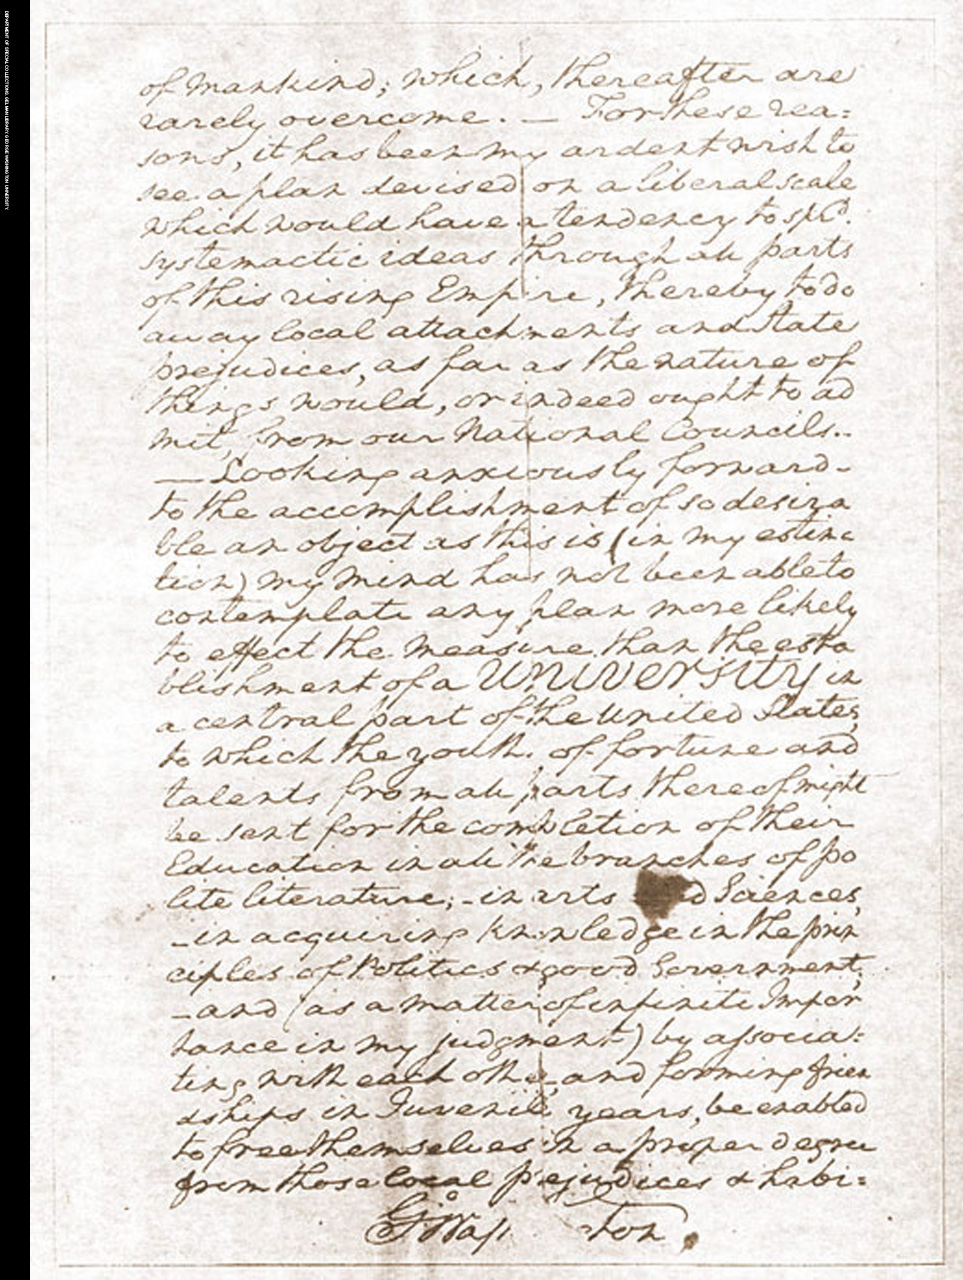 DEPARTMENT OF SPECIAL COLLECTIONS, GELMAN LIBRARY, GEORGE WASHINGTON UNIVERSITY
of mankind; which, thereafter are
rarely overcome. — For these rea=
sons, it has been my ardent wish to
see a plan devised on a liberal scale
which would have a tendency to sprd.
systemactic ideas through all parts
of this rising Empire, thereby to do
away local attachments and State
prejudices, as far as the nature of
things would, or indeed ought to ad
mit, from our National Councils..
— Looking anxiously forward-
to the accomplishment of so desira
ble an object as this is (in my estima
tion) my mind has not been able to
contemplate any plan more likely
to effect the measure than the esta
blishment of a UNIVERSITY in
a central part of the United States,
to which the youth of fortune and
talents from all parts thereof might
be sent for the completion of their
Education in all the branches of po
lite literature; - in arts and Sciences,
- in acquiring knowledge in the prin
ciples of Politics & good Government;
- and (as a matter of infinite Impor
tance in my judgment) by associa:
ting with each other, and forming frien
dships in Juvenile years, be enabled
to free themselves in a proper degree
from those local prejudices & habi=
Go Wash ton